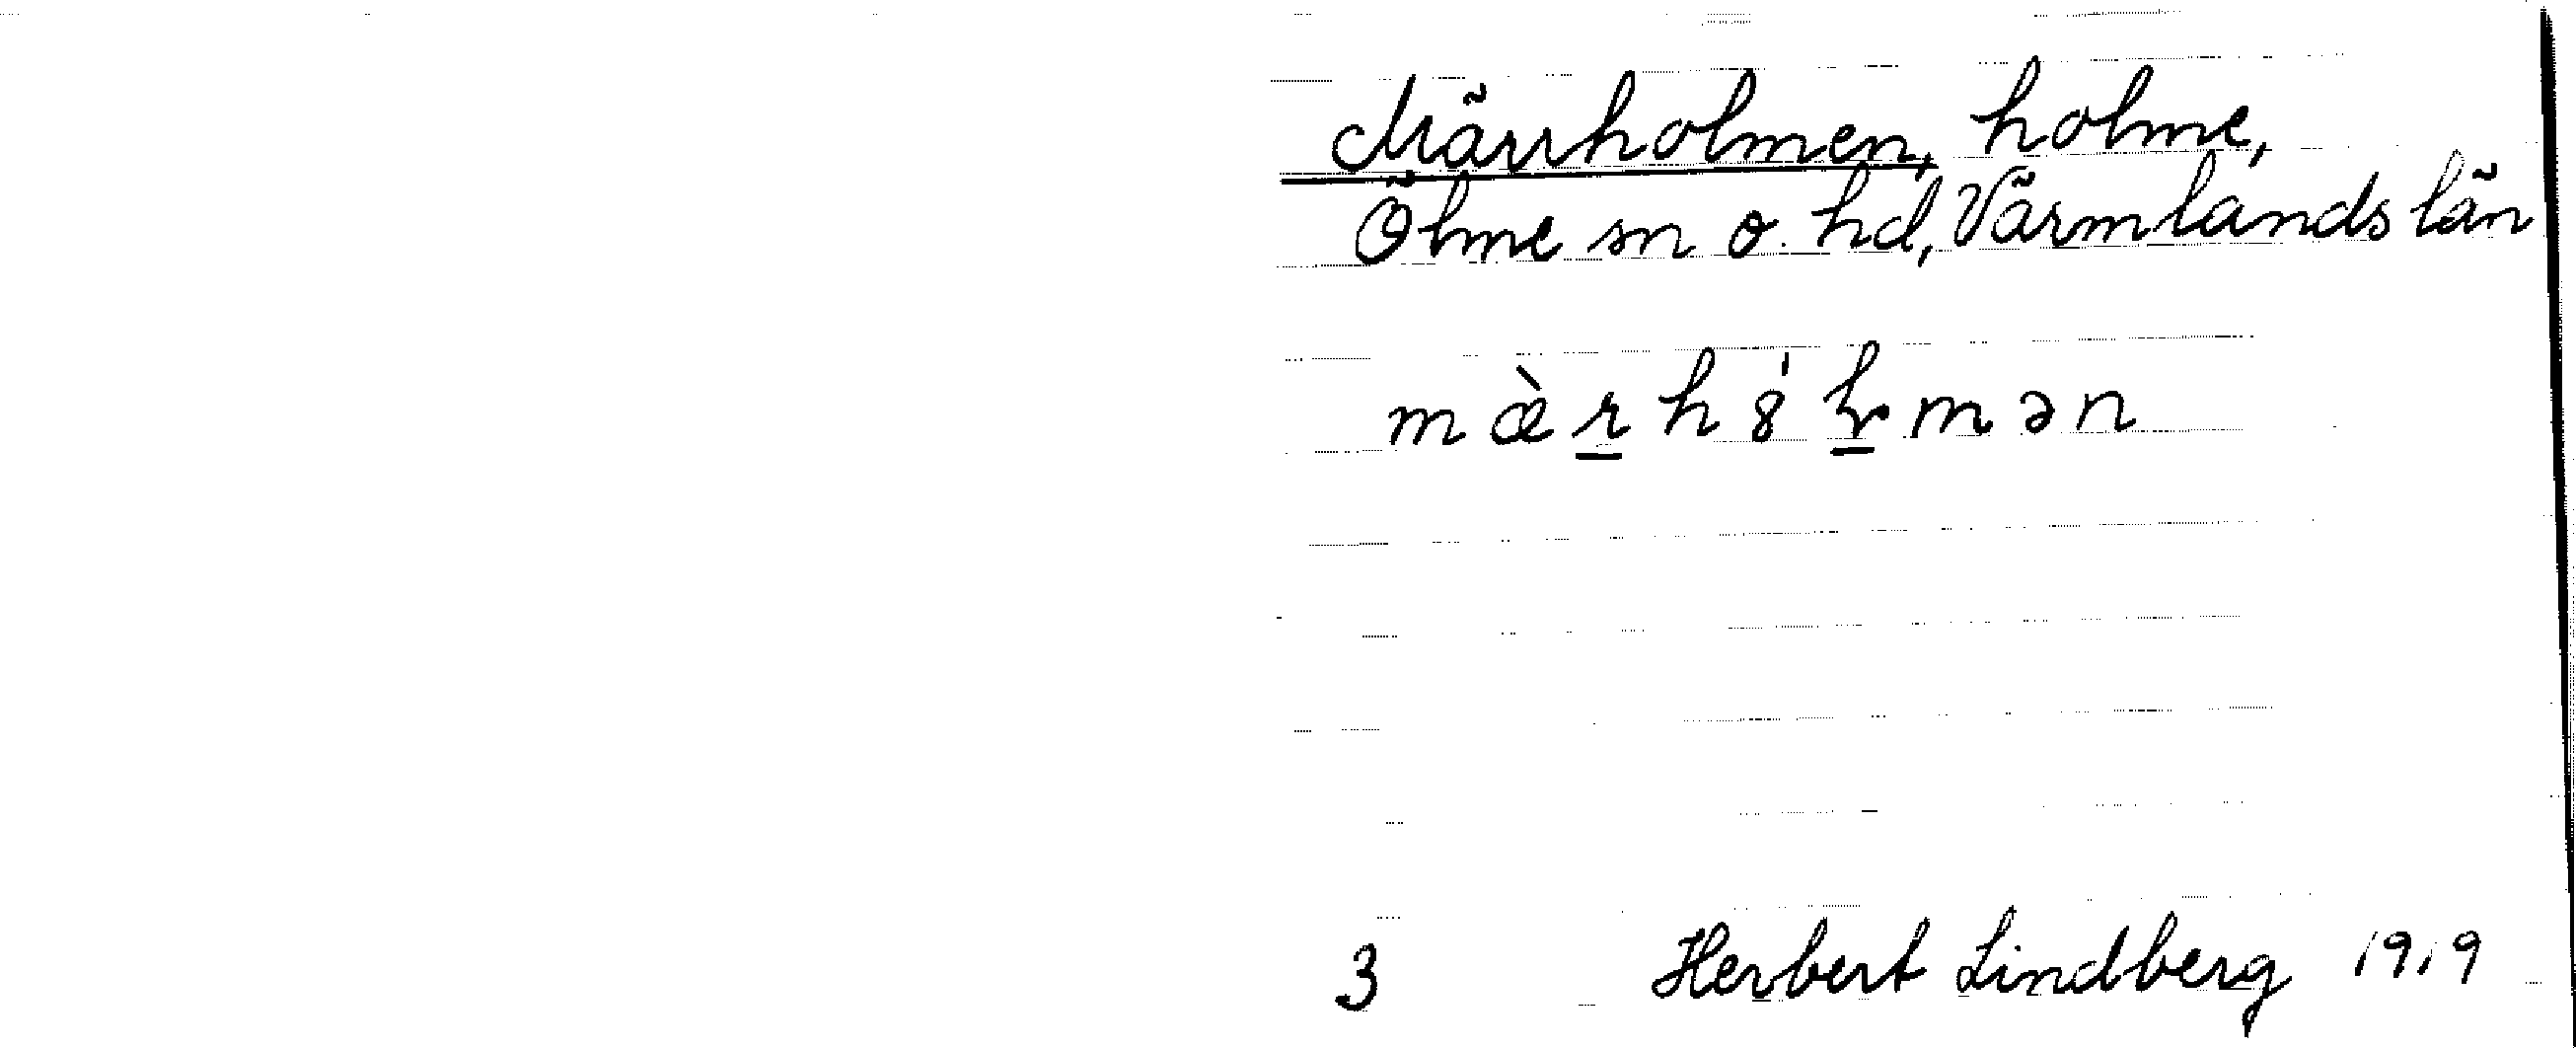 Märrholmen, holme,
Ölme sn o. hd, Värmlands län
3 Herbert Lindberg 1919